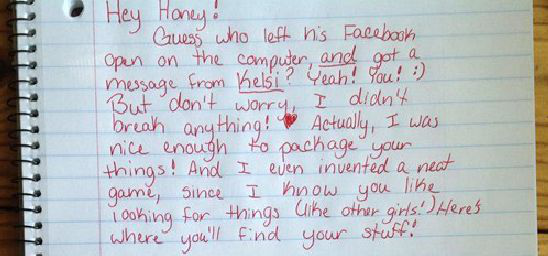 Hey Honey!
Guess who left his Facebook
open on the computer, and got a
message from Kelsi? Yeah! You! :)
But don't worry, I didn't
break anything! ♥ Actually, I was
nice enough to package your
things! And I even invented a neat
game, since I know you like
looking for things (like other girls!) Here's
where you'll find your stuff!